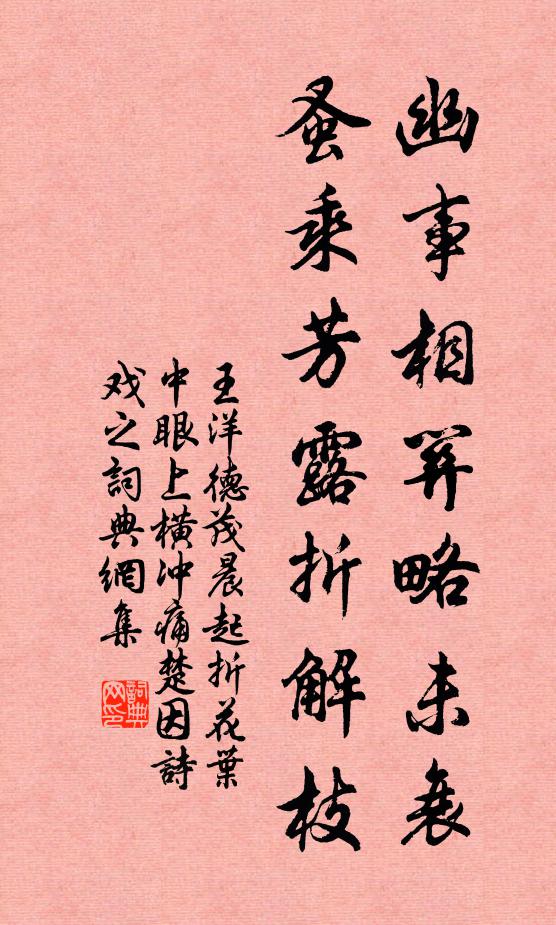 幽事相筓略未衰
蚤乘芳露折解枝
王洋德茂晨起折花葉
中眼上横冲痛楚因詩
戏之詞典網集
詞典网印